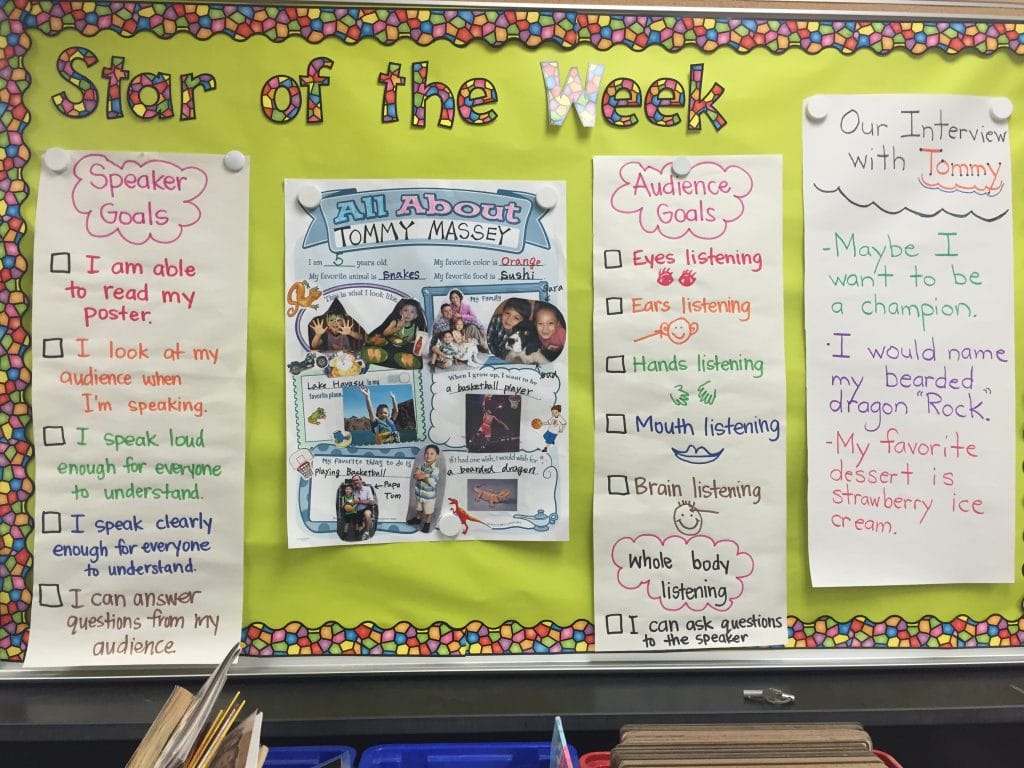 Star of the Week
Speaker
Goals
I am able
to read my
poster.
I look at my
audience when
I'm speaking.
I speak loud
enough for everyone
to understand.
I speak clearly
enough for everyone
to understand.
I can answer
questions from my
audience.
All About
TOMMY MASSEY
I am 5 years old.
My favorite color is Orange
My favorite animal is snakes
My favorite food is Sushi
This is what I look like
My Family
Sara
Lake Havasu is my
favorite place.
When I grow up, I want to be
a basketball player
My favorite thing to do is
playing Basketball
Papa
Tom
If I had one wish, I would wish for
a bearded dragon
Audience
Goals
Eyes listening
Ears listening
Hands listening
Mouth listening
Brain listening
Whole body
listening
I can ask questions
to the speaker
Our Interview
with Tommy
-Maybe I
want to be
a champion.
·I would name
my bearded
dragon "Rock".
-My favorite
dessert is
strawberry ice
cream.